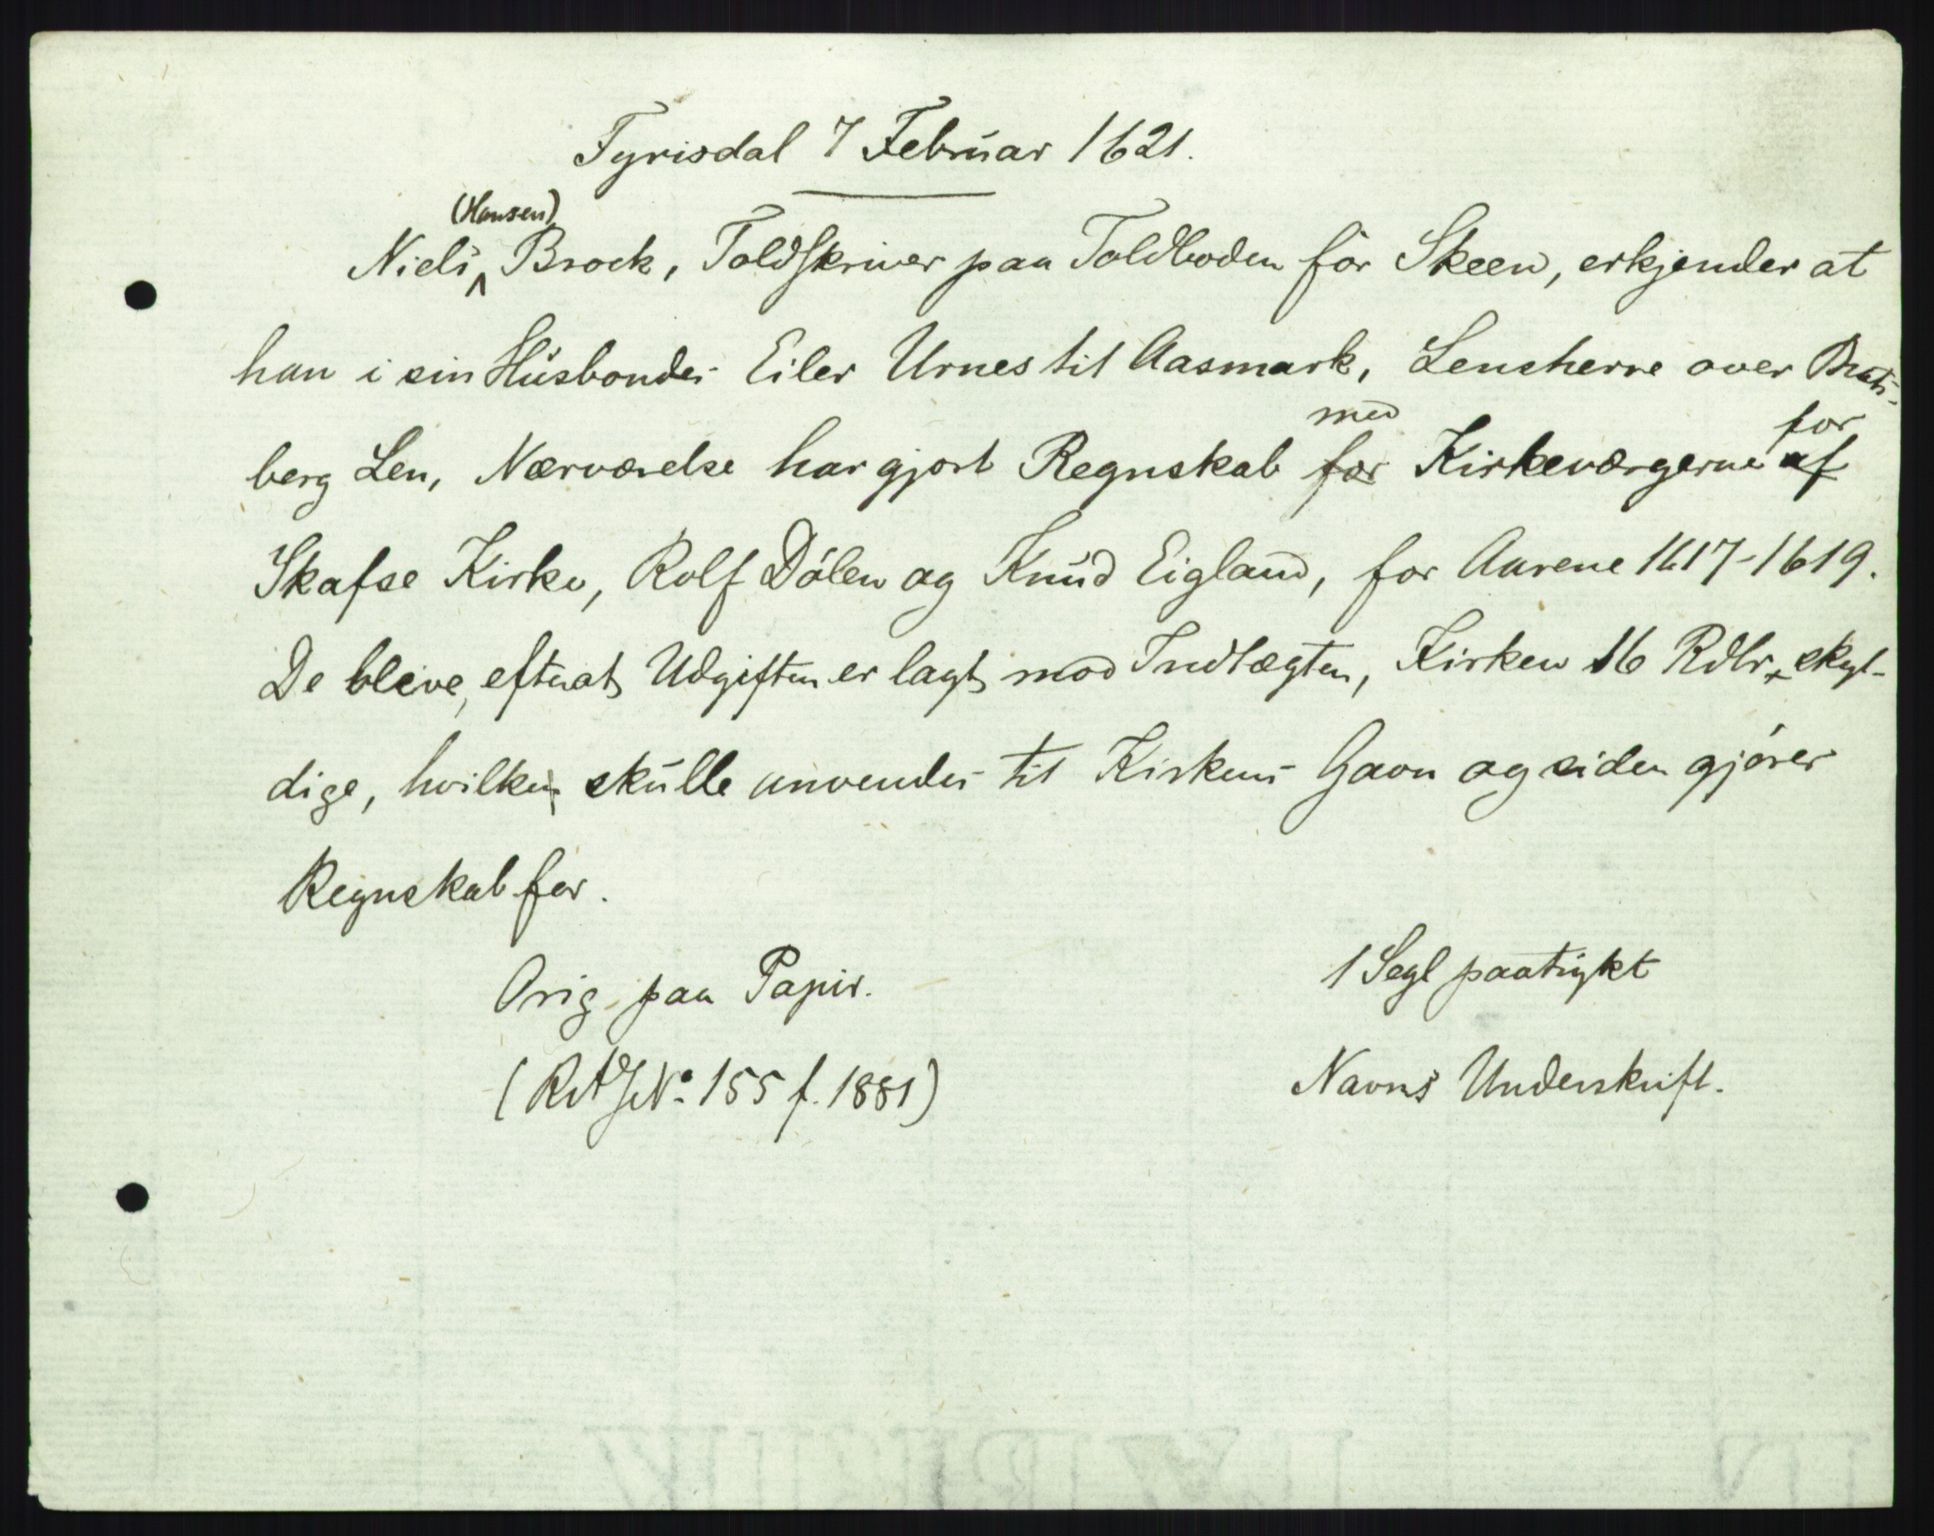 Tyrisdal 7 Februar 1621.
(Hansen)
Niels Brock, Toldskriver paa Toldboden för Skeen, erkjender at
han i sin Husbondes Eiler Urnes til Aasmark, Lensherre over Brats-
berg Len, Nærværelse har gjort Regnskab for med Kirkeværgerne af for
Skafse Kirke, Rolf Dölen og Knud Eigland, for Aarene 1617-1619.
De bleve, efterat Udgiften er lagt mod Indtægten, Kirken 16 Rdlr. skyl-
dige, hvilke skulle anvendes til Kirkens Gavn og siden gjöres
Regnskab for.
Orig paa Papir.
1 Segl paatrykt
(RA JNo. 155 f. 1881)
Navns Underskrift.